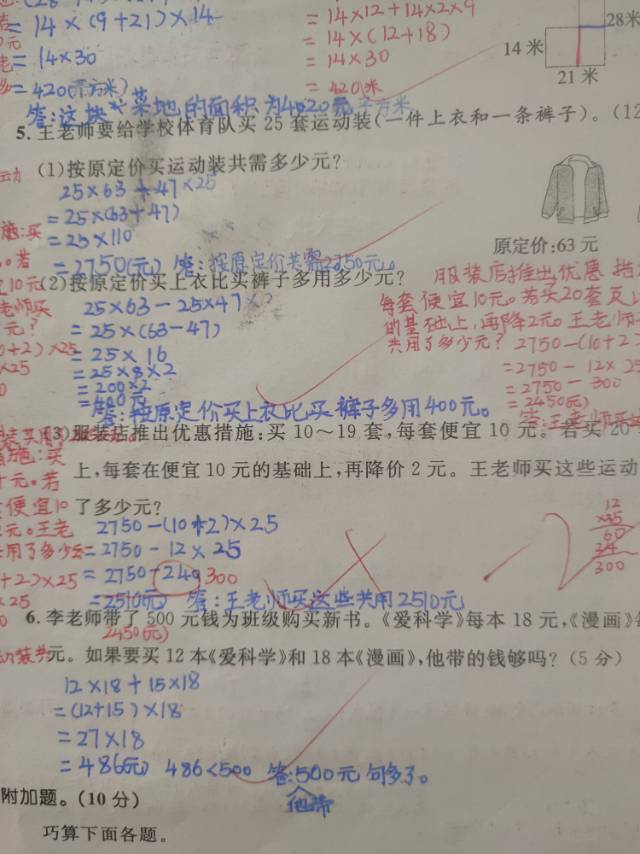 = 14×(9+21)×14
= 14×30
= 420(平方米)
= 14×12+14×2×9
= 14×(12+18)
= 14×30
= 420米
14 米
28米
21 米
答:这块菜地的面积为4020
平方米
5. 王老师要给学校体育队买 25 套运动装(一件上衣和一条裤子)。(12
(1)按原定价买运动装共需多少元?
25×63+47×25
=25×(63+47)
=25×110
=2750(元) 答:按原定价共需2750元。
原定价:63 元
(2)按原定价买上衣比买裤子多用多少元?
25×63-25×47
=25×(63-47)
=25×16
=25×8×2
=200×2
=400元
答:按原定价买上衣比买裤子多用400元。
服装店推出优惠措
每套便宜10元。若买20套
的基础上,再降2元。王老师
共用了多少元? 2750-(10+2)
=2750-12×25
=2750-300
=2450(元)
答:王老师买
(3)服装店推出优惠措施:买 10～19 套,每套便宜 10 元。若买 20
上,每套在便宜 10 元的基础上,再降价 2 元。王老师买这些运动
了多少元?
2750-(10+2)×25
=2750-12×25
=2750-240 300
=2510(元) 答:王老师买这些共用2510元
2450元)
12
×25
60
24
300
6. 李老师带了 500 元钱为班级购买新书。《爱科学》每本 18 元,《漫画》每
元。如果要买 12 本《爱科学》和 18 本《漫画》,他带的钱够吗?(5 分)
12×18+15×18
=(12+15)×18
=27×18
=486(元) 486<500 答:500元句多了。
他带
附加题。(10 分)
巧算下面各题。